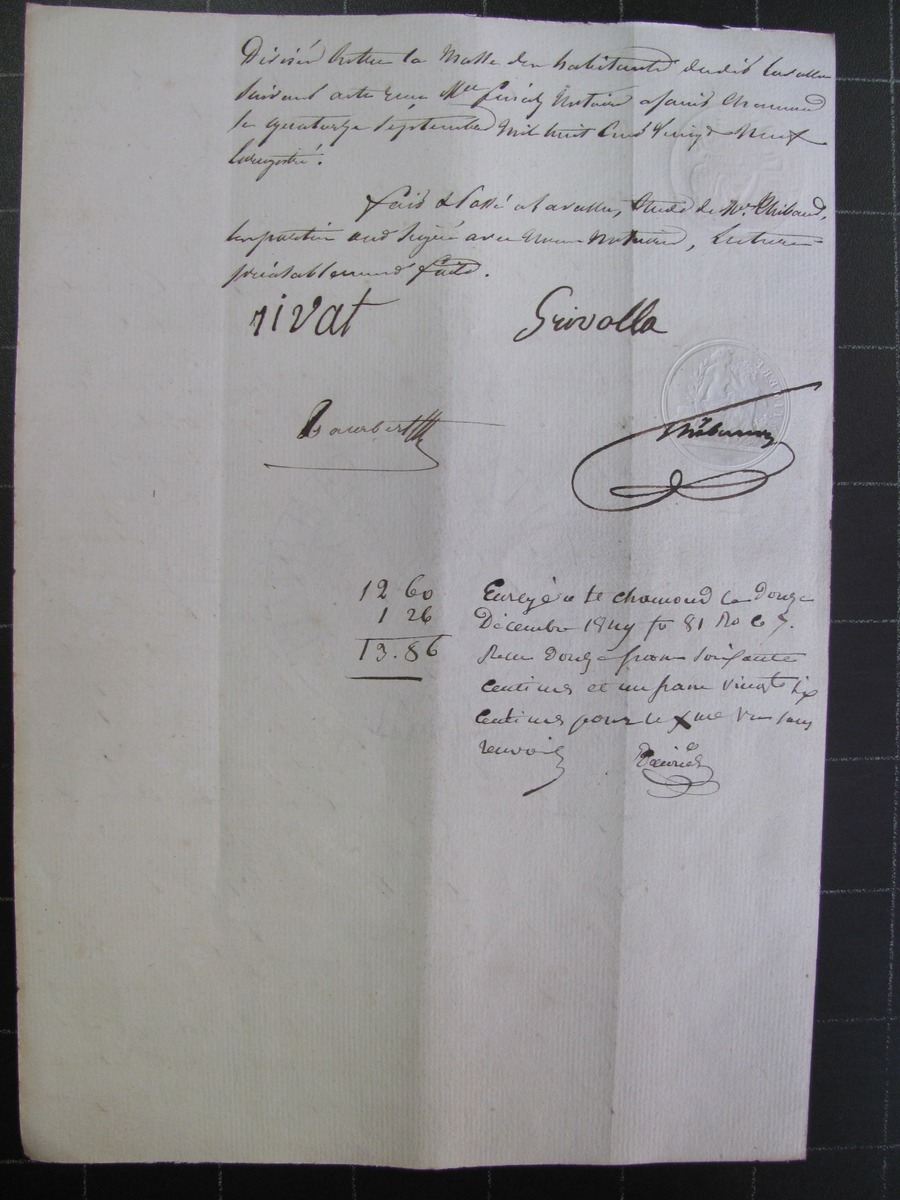 Divisés entre la Masse des habitants dudit Lavalla
suivant acte reçu Me Notaire a Saint Chamond
le quatorze Septembre Mil huit Cent Vingt Neuf
Enregistré.
fait & Passé a Lavalla, Etude de Me Thibaud,
les parties ont Signé avec Nous Notaires, Lecture
préalablement faite.
rivat Grivolla
12 60 Enregé a St chamond le Douze
1 26 Décembre 1829 fo 81 Ro C 7.
13.86 Reçu Douze francs soixante
centimes et un franc vingt six
centimes pour le xme Vu sans
renvoi